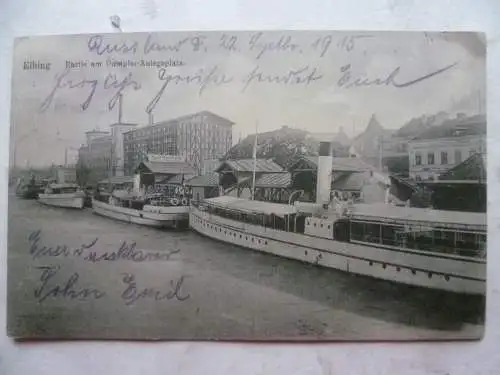 Elbing Partie am Dampfer-Anlegeplatz.
Russland d. 22 Septbr. 1915
Grüsse sendet Euch
Euer dankbarer
Sohn Emil